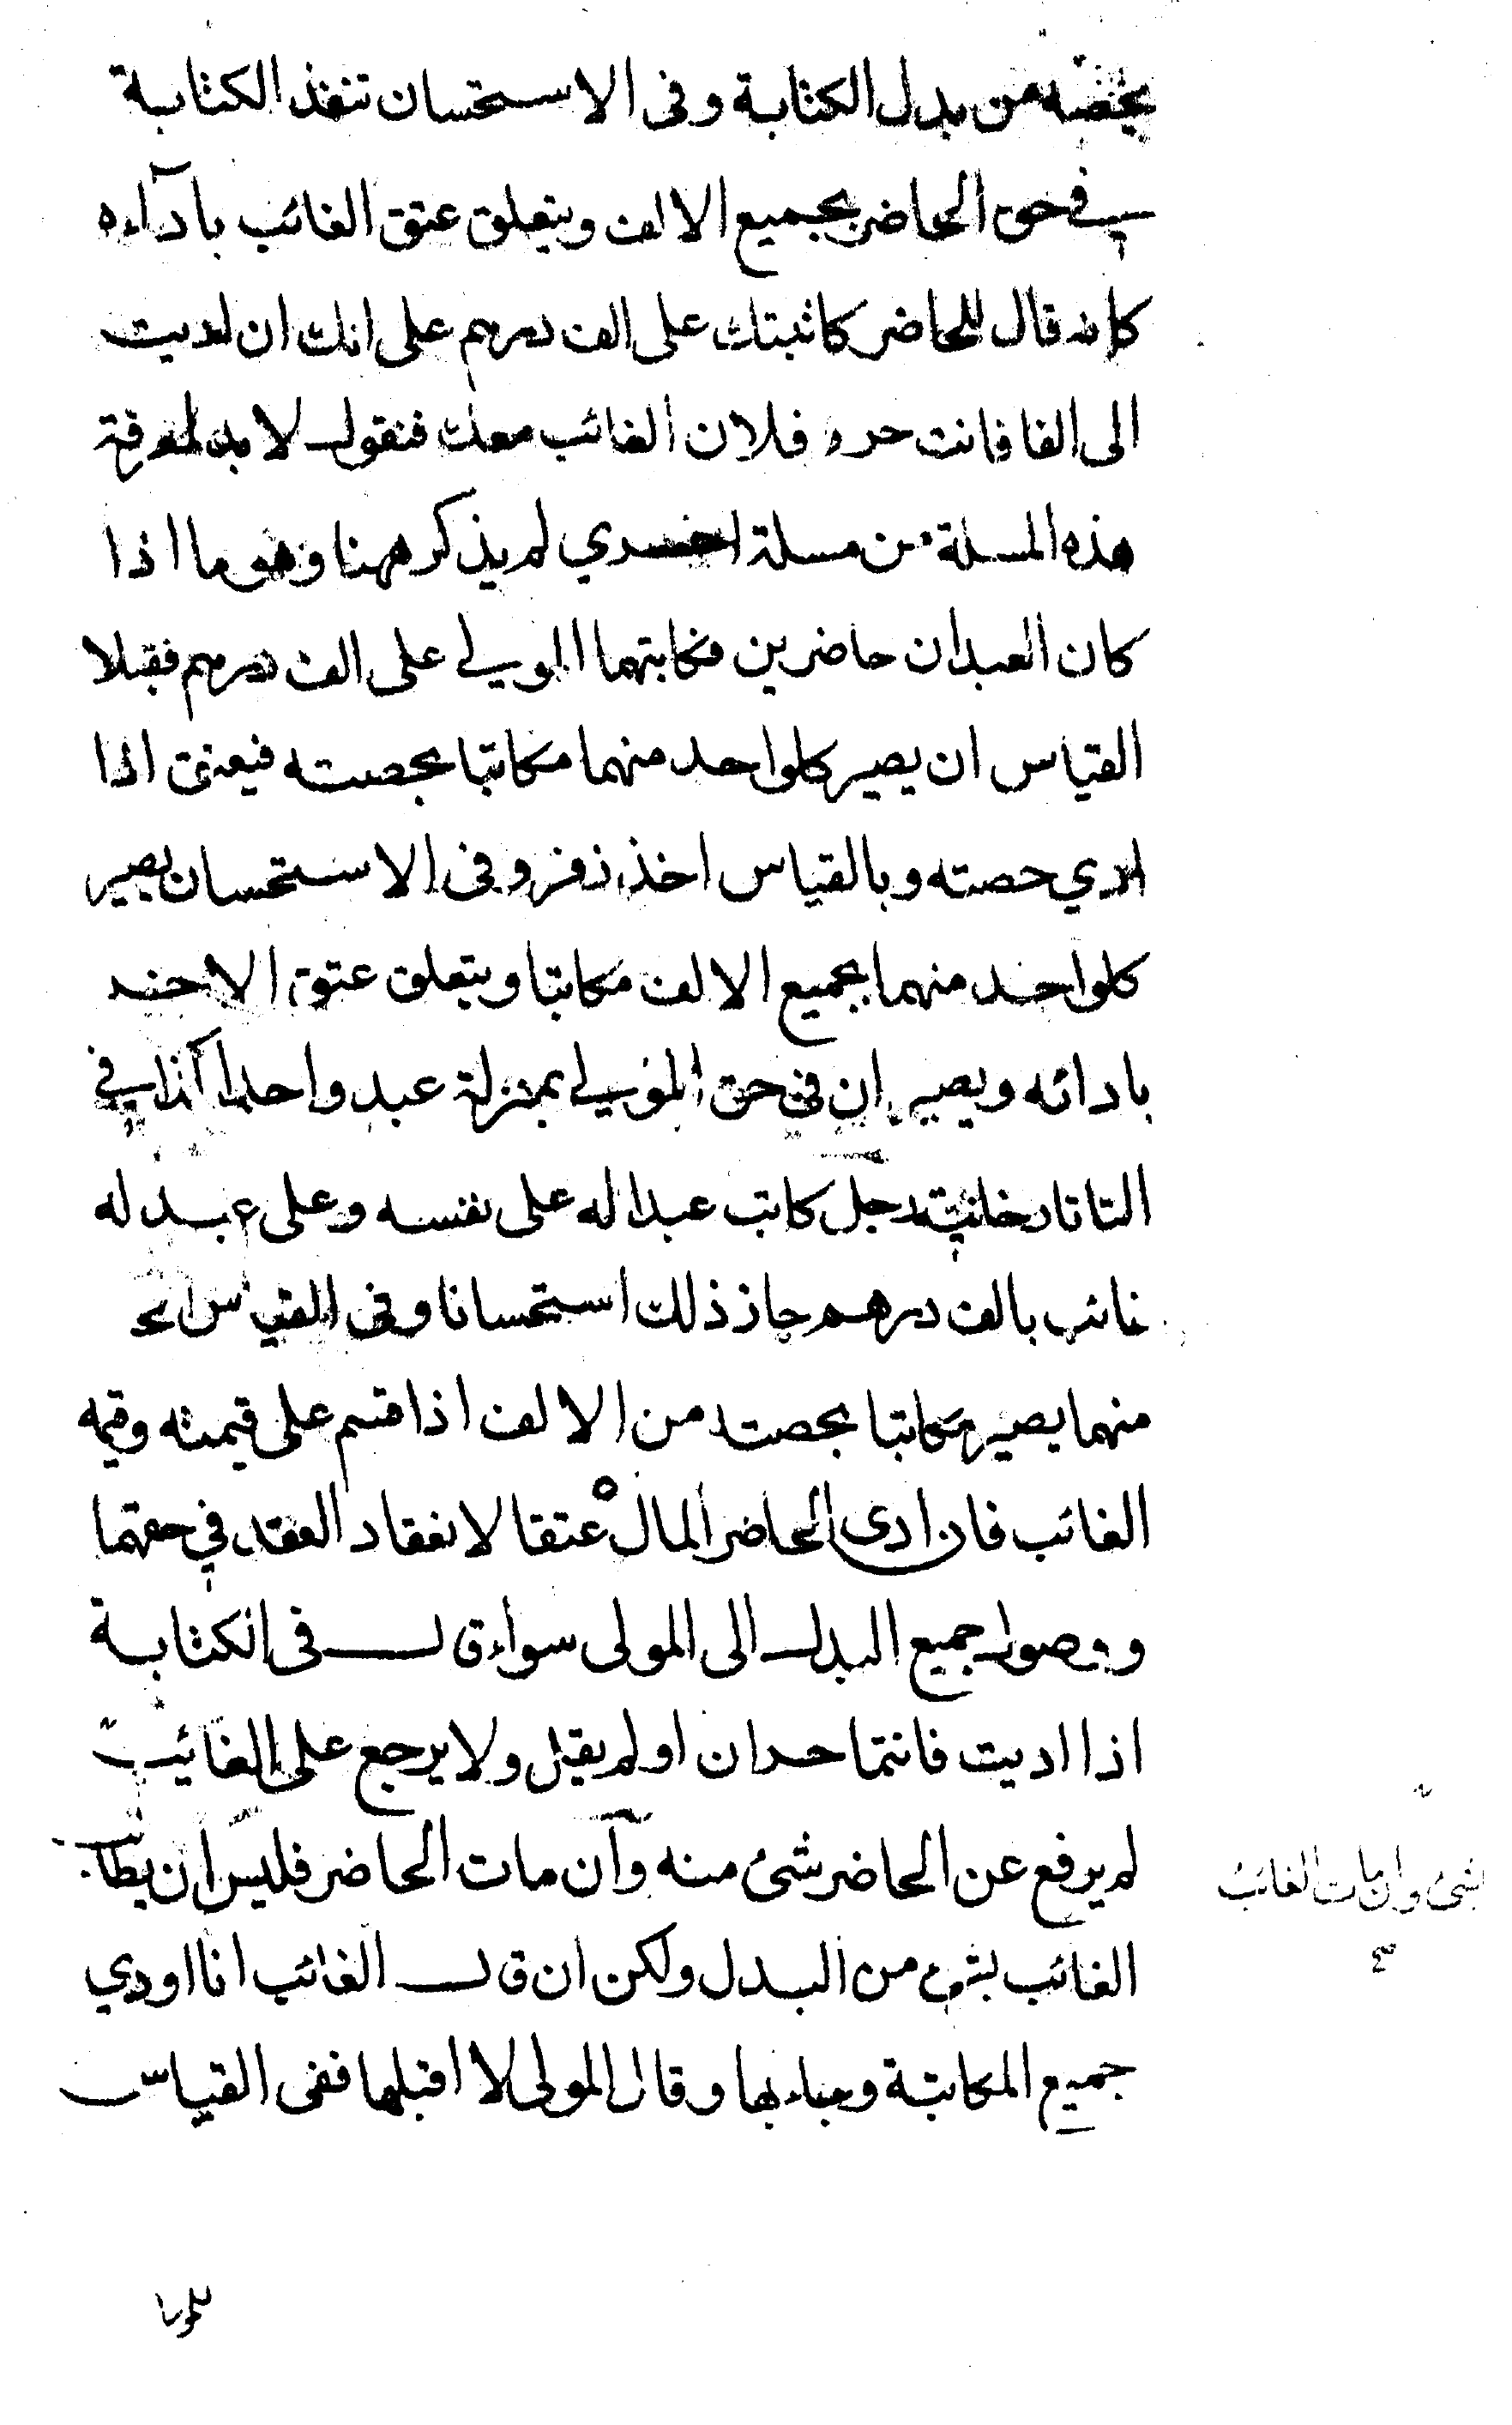 بحصته من بدل الكتابة وفى الاستحسان تنفذ الكتابة
فى حق الحاضر بجميع الالف ويتعلق عتق الغائب بادآءه
كانه قال للحاضر كاتبتك على الف درهم على انك ان اديت
الى الفا فانت حر و فلان الغائب معك فنقول لا بد لمعرفة
هذه المسلة من مسلة اخرى لم يذكر ههنا وهو ما اذا
كان العبدان حاضرين فكاتبهما المولى على الف درهم فقبلا
القياس ان يصير كلواحد منهما مكاتبا بحصته فيعتق اذا
ادي حصته وبالقياس اخذ زفر وفى الاستحسان يصير
كلواحد منهما بجميع الالف مكاتبا ويتعلق عتق الاخر
بادائه ويصيران فى حق المولى بمنزلة عبد واحد كذا فى
التاتارخانية رجل كاتب عبدا له على نفسه وعلى عبد له
غائب بالف درهم جاز ذلك استحسانا وفى القياس
منهما يصير مكاتبا بحصته من الالف اذا قسم على قيمته وقيمة
الغائب فان ادى الحاضر المال عتقا لانعقاد العقد في حقهما
ووصول جميع البدل الى المولى سواء قال فى الكتابة
اذا اديت فانتما حران او لم يقل ولا يرجع على الغائب
لم يرفع عن الحاضر شئ منه وآن مات الحاضر فليس ان يطالب
الغائب بشئ من البدل ولكن ان قال الغائب انا اودي
جميع المكاتبة وجاء بها وقال المولى لا اقبلها ففى القياس
بشئ وان مات الغائب